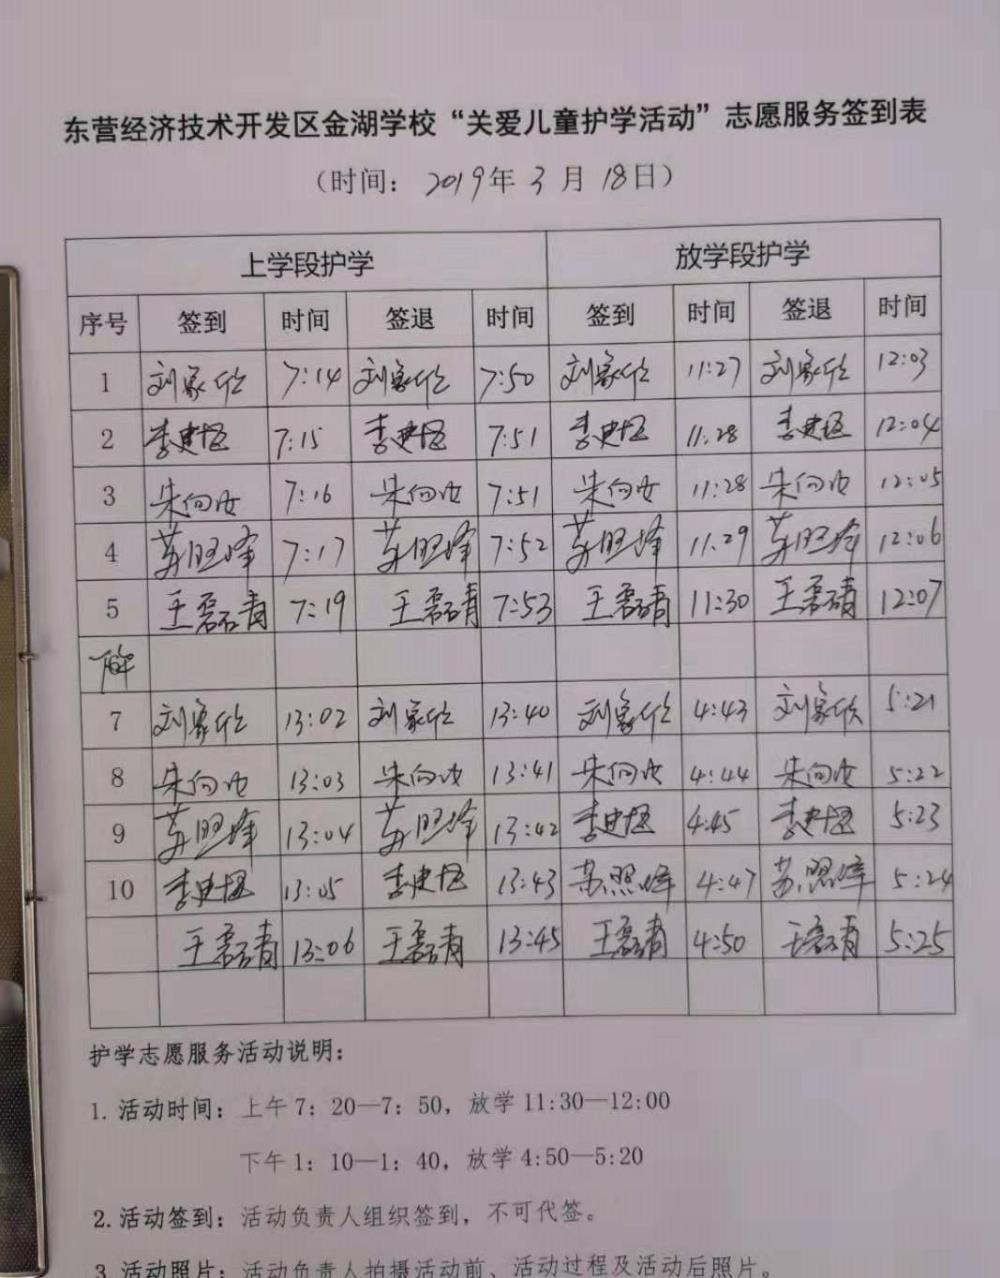 东营经济技术开发区金湖学校“关爱儿童护学活动”志愿服务签到表
（时间：2019年3月18日）
上学段护学 放学段护学
序号 签到 时间 签退 时间 签到 时间 签退 时间
1 刘家欣 7:14 刘家欣 7:50 刘家欣 11:27 刘家欣 12:03
2 李建强 7:15 李建强 7:51 李建强 11:28 李建强 12:04
3 朱向汝 7:16 朱向汝 7:51 朱向汝 11:28 朱向汝 12:05
4 苏照峰 7:17 苏照峰 7:52 苏照峰 11:29 苏照峰 12:06
5 王磊青 7:19 王磊青 7:53 王磊青 11:30 王磊青 12:07
下午
7 刘家欣 13:02 刘家欣 13:40 刘家欣 4:43 刘家欣 5:21
8 朱向汝 13:03 朱向汝 13:41 朱向汝 4:44 朱向汝 5:22
9 苏照峰 13:04 苏照峰 13:42 李建强 4:45 李建强 5:23
10 李建强 13:05 李建强 13:43 苏照峰 4:47 苏照峰 5:24
王磊青 13:06 王磊青 13:45 王磊青 4:50 王磊青 5:25
护学志愿服务活动说明：
1.活动时间：上午7：20—7：50，放学11:30—12:00
下午1：10—1：40，放学4:50—5:20
2.活动签到：活动负责人组织签到，不可代签。
3.活动照片：活动负责人拍摄活动前、活动过程及活动后照片。